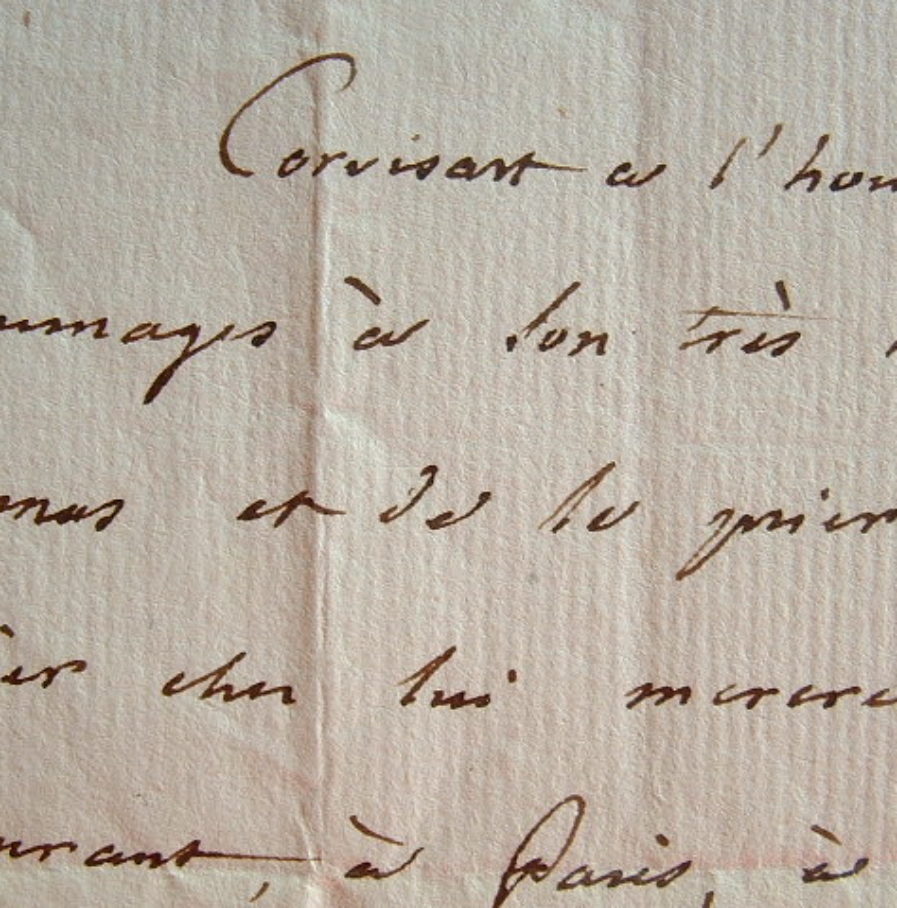 Corvisart a l'hon
ommages à son très
mas et de le prier
er chez lui mercre
urant, à Paris, à